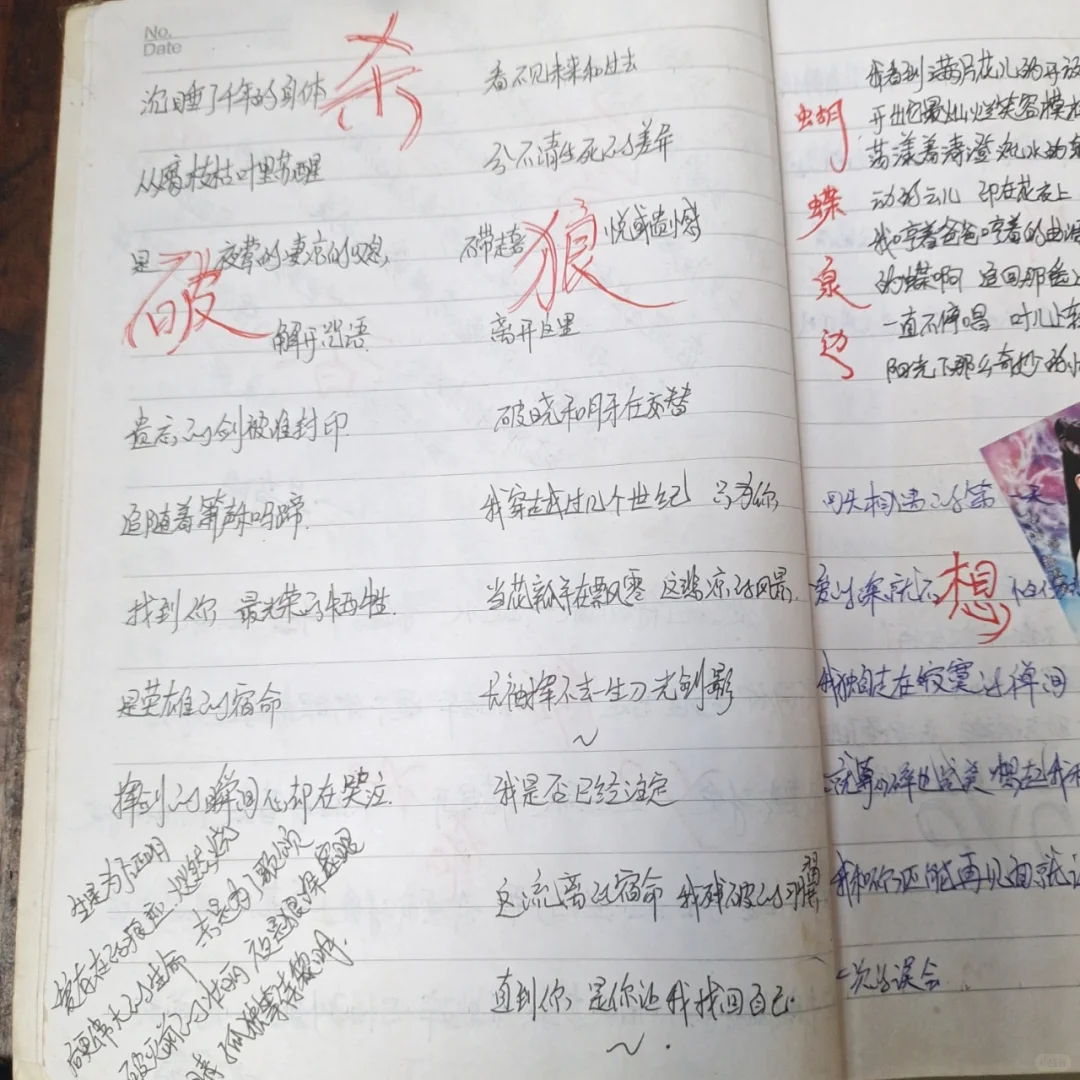 No.
Date
杀
破
狼
沉睡了千年的身体
从腐枝枯叶里苏醒
是 夜莺的凄凉的叹息
解开咒语
遗忘的剑被谁封印
追随着箫声和马蹄
找到你 最光荣的牺牲
是英雄的宿命
挥剑的瞬间心却在哭泣
生是为了证明
爱存在的痕迹
后更伟大的生命 亲是为了歌颂
破灭前的 夜是狼深密眼
孤独等待黎明
看不见未来和过去
分不清生死的差异
不带走喜悦或遗憾
离开这里
破晓和月牙在交替
我穿越过几个世纪 只为你
当花瓣在飘零 这悲凉的风景
长袖挥不去一生刀光剑影
~
我是否已经注定
这流离的宿命 我残破的羽翼
翼
直到你 是你让我找回自己
~
蝴蝶泉边
我看到满片花儿的开放
开出它最灿烂笑容模
荡漾着清澄泉水的
动的云儿 印在花衣上
我哼着爸爸哼着的曲
的蝶啊 追回那
一直不停唱 叶儿上
阳光下那么奇妙的
想
回头相遇的第一天
爱的深就不
我独自走在寂寞的
就算 碎也完美 想在
我和你还能再见面就
一次的误会